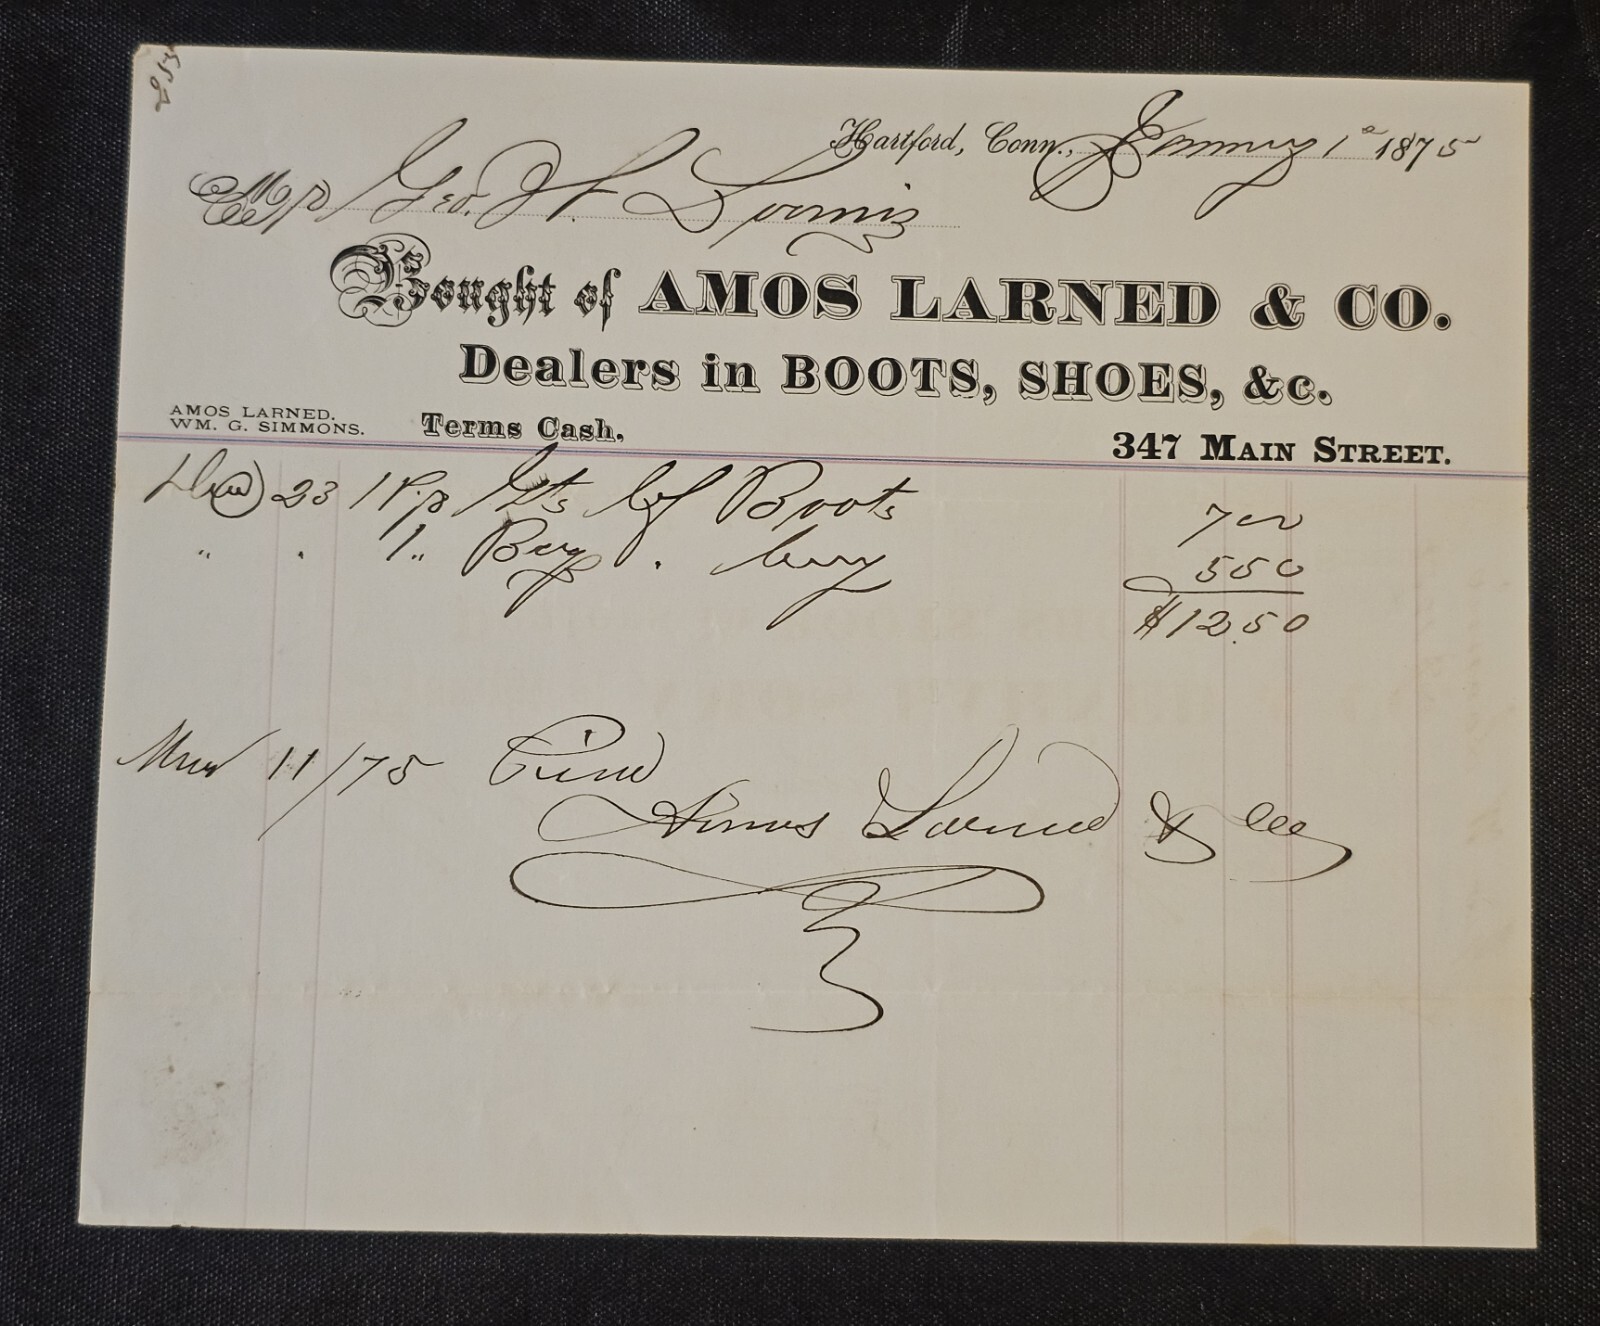 Hartford, Conn., January 1º 1875
Mr Geo. W. Loomis
Bought of AMOS LARNED & CO.
Dealers in BOOTS, SHOES, &c.
AMOS LARNED.
WM. G. SIMMONS.
Terms Cash.
347 MAIN STREET.
23 1 Pr Gts Cf Boots 700
" " 1 " Boys " 550
$12.50
11/75
Amos Larned & Co